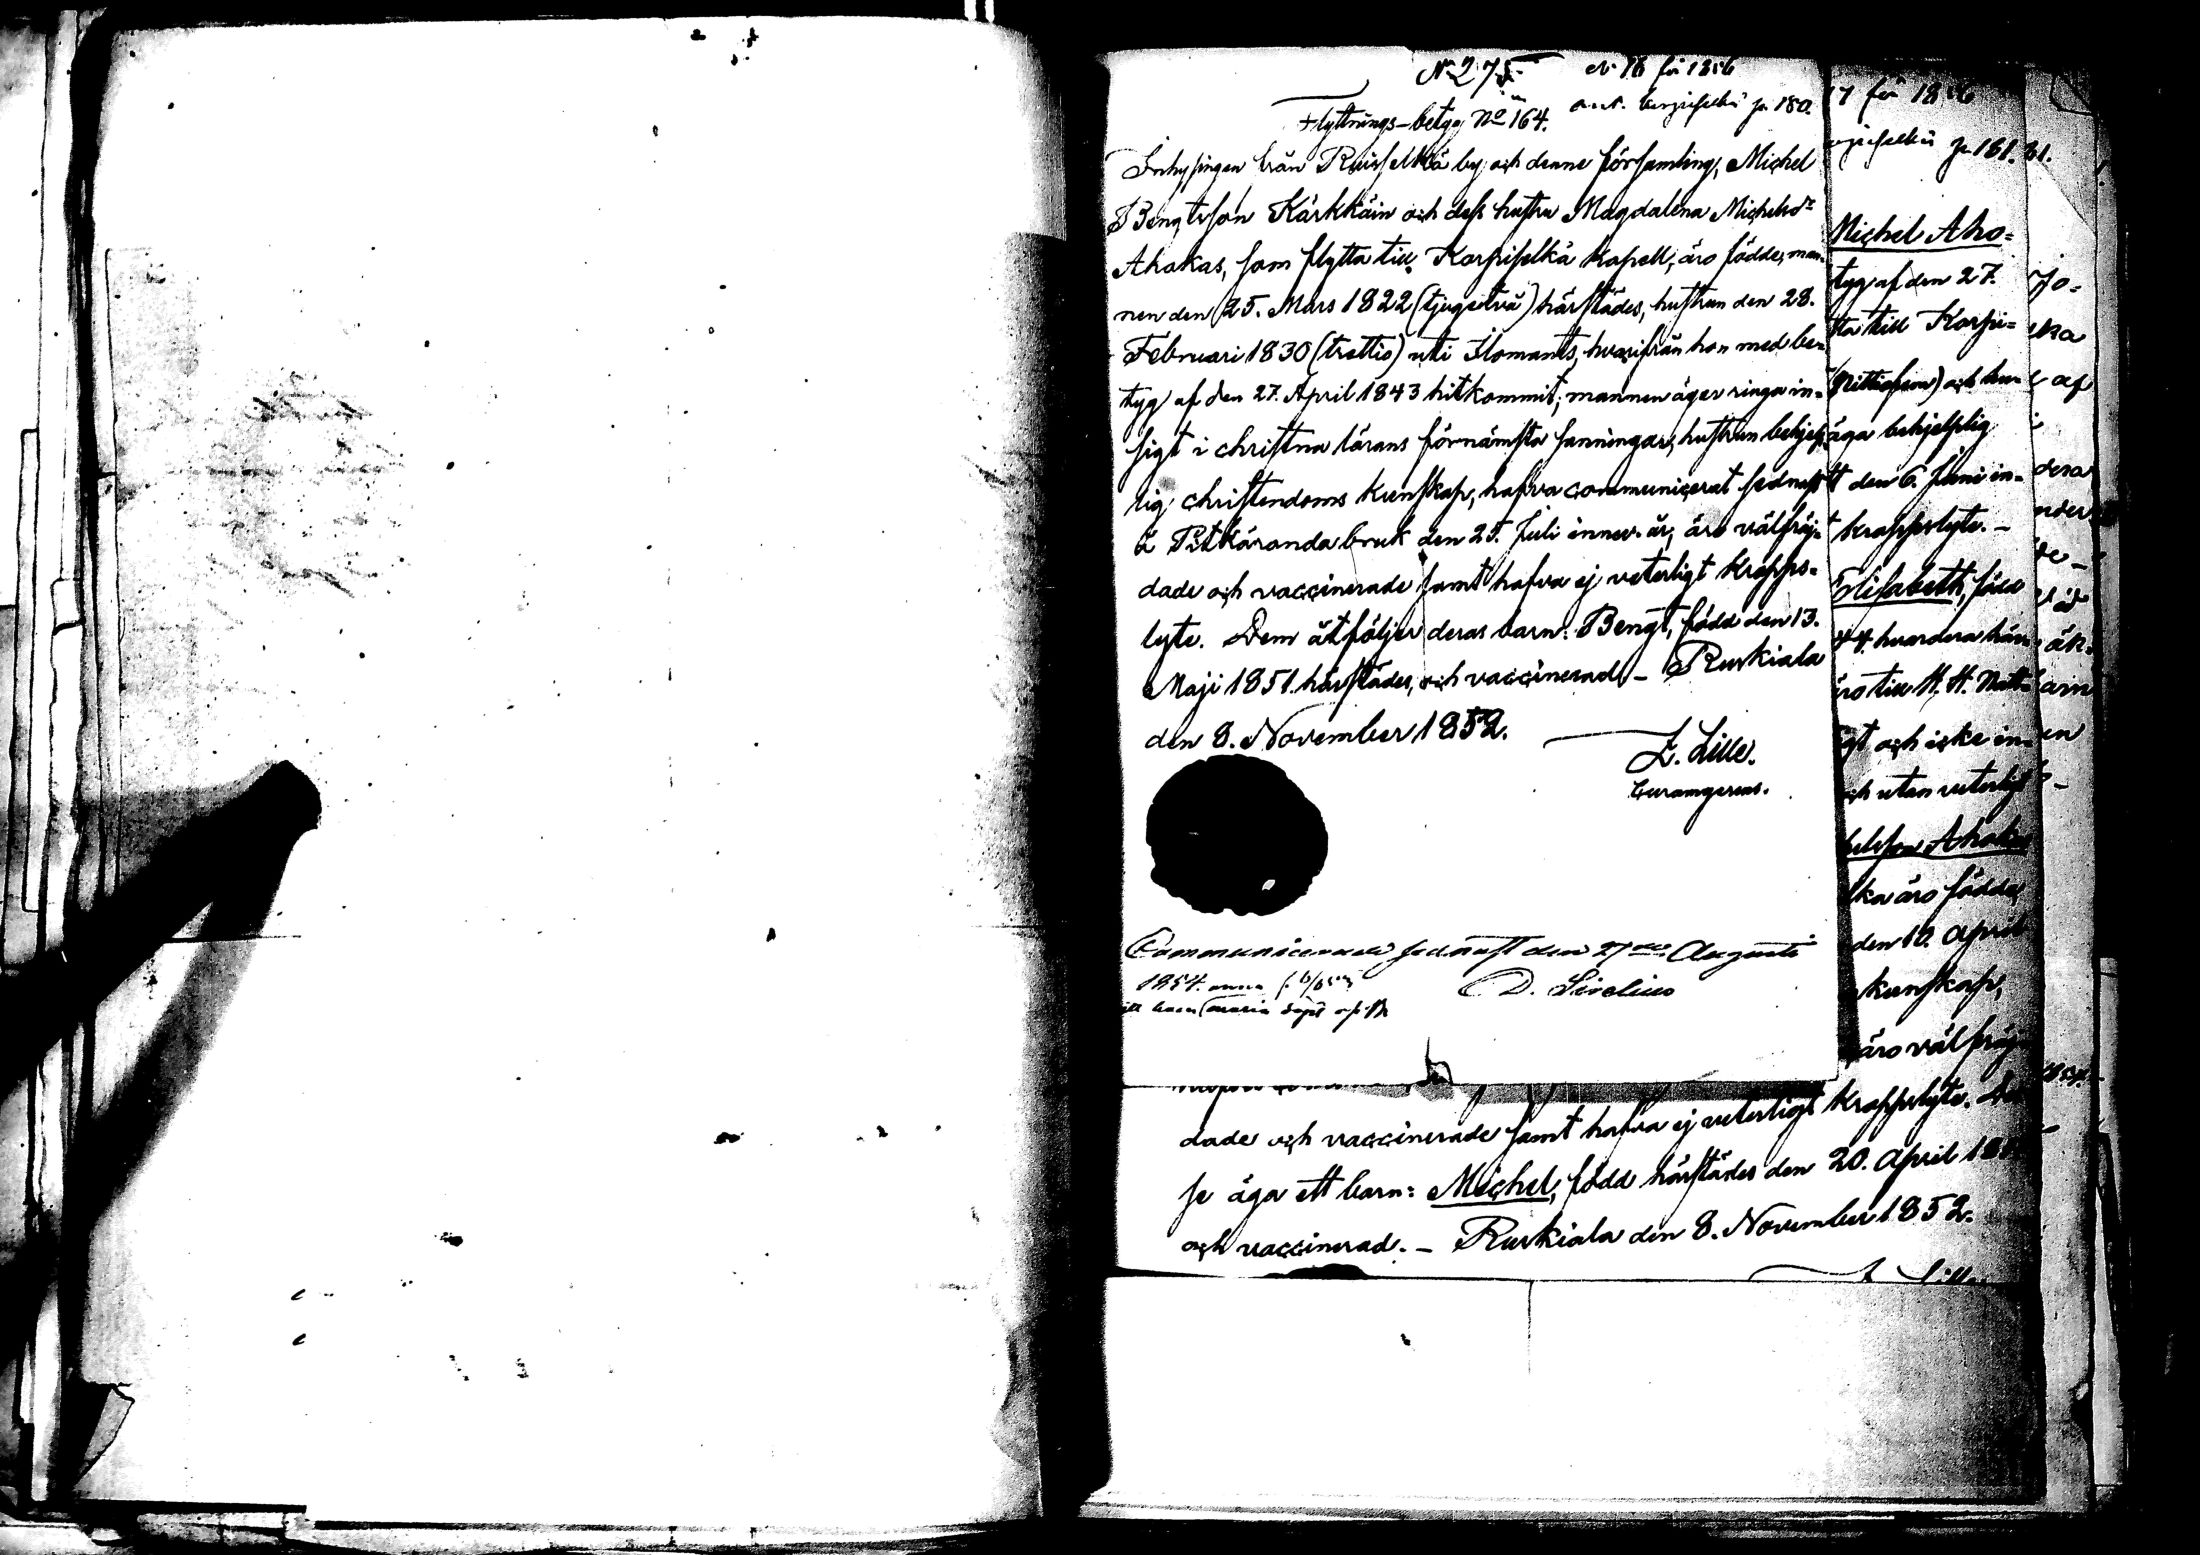 No 275
No 16 för 1856
Flyttnings-betyg No 164.
p. 180.
Inhysingen från Ruisselkä by och denne församling, Michel
Bengtsson Kärkkäin och dess hustru Magdalena Michelsdr
Ahokas, som flytta till Korpiselkä Kapell, äro födde, man-
nen den 25. Mars 1822 (tjugetvå) härstädes, hustrun den 28.
Februari 1830 (trettio) uti Ilomants, hvarifrån hon med be-
tyg af den 27. April 1843 hitkommit; mannen äger ringa in-
sigt i christna lärans förnämsta sanningar, hustrun behjelp-
lig christendoms kunskap, hafva communicerat sednast
å Pitkäranda bruk den 25. Juli innev. år, äro välfräj-
dade och vaccinerade samt hafva ej veterligt kropps-
lyte. Dem åtföljer deras barn: Bengt, född den 13.
Maji 1851. härstädes, och vaccinerad. - Ruskiala
den 8. November 1852.
Z. Lille.
Curam gerens.
Communicerade sednast den 27de Augusti
1854.
D. Sirelius
17 för 1856
p. 181.
Michel Aho-
tyg af den 27.
tta till Korpi-
äga behjelplig
den 6. Juni in-
kroppslyte. -
Elisabeth, född
44. hvardera här-
gt och icke in-
och utan veterligt
helsson Ahokas
lka äro födde,
den 10. April
kunskap,
äro välfräj-
dade och vaccinerade samt hafva ej veterligt kroppslyte. De
se äga ett barn: Michel, född härstädes den 20. April
och vaccinerad. - Ruskiala den 8. November 1852.